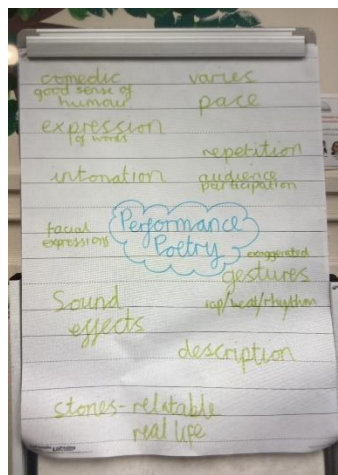 comedic
good sense of
humour
varies
pace
expression
of words
repetition
intonation
audience
participation
facial
expressions
Performance
Poetry
exaggerated
gestures
Sound
effects
rap/beat/rhythm
description
stories - relatable
real life